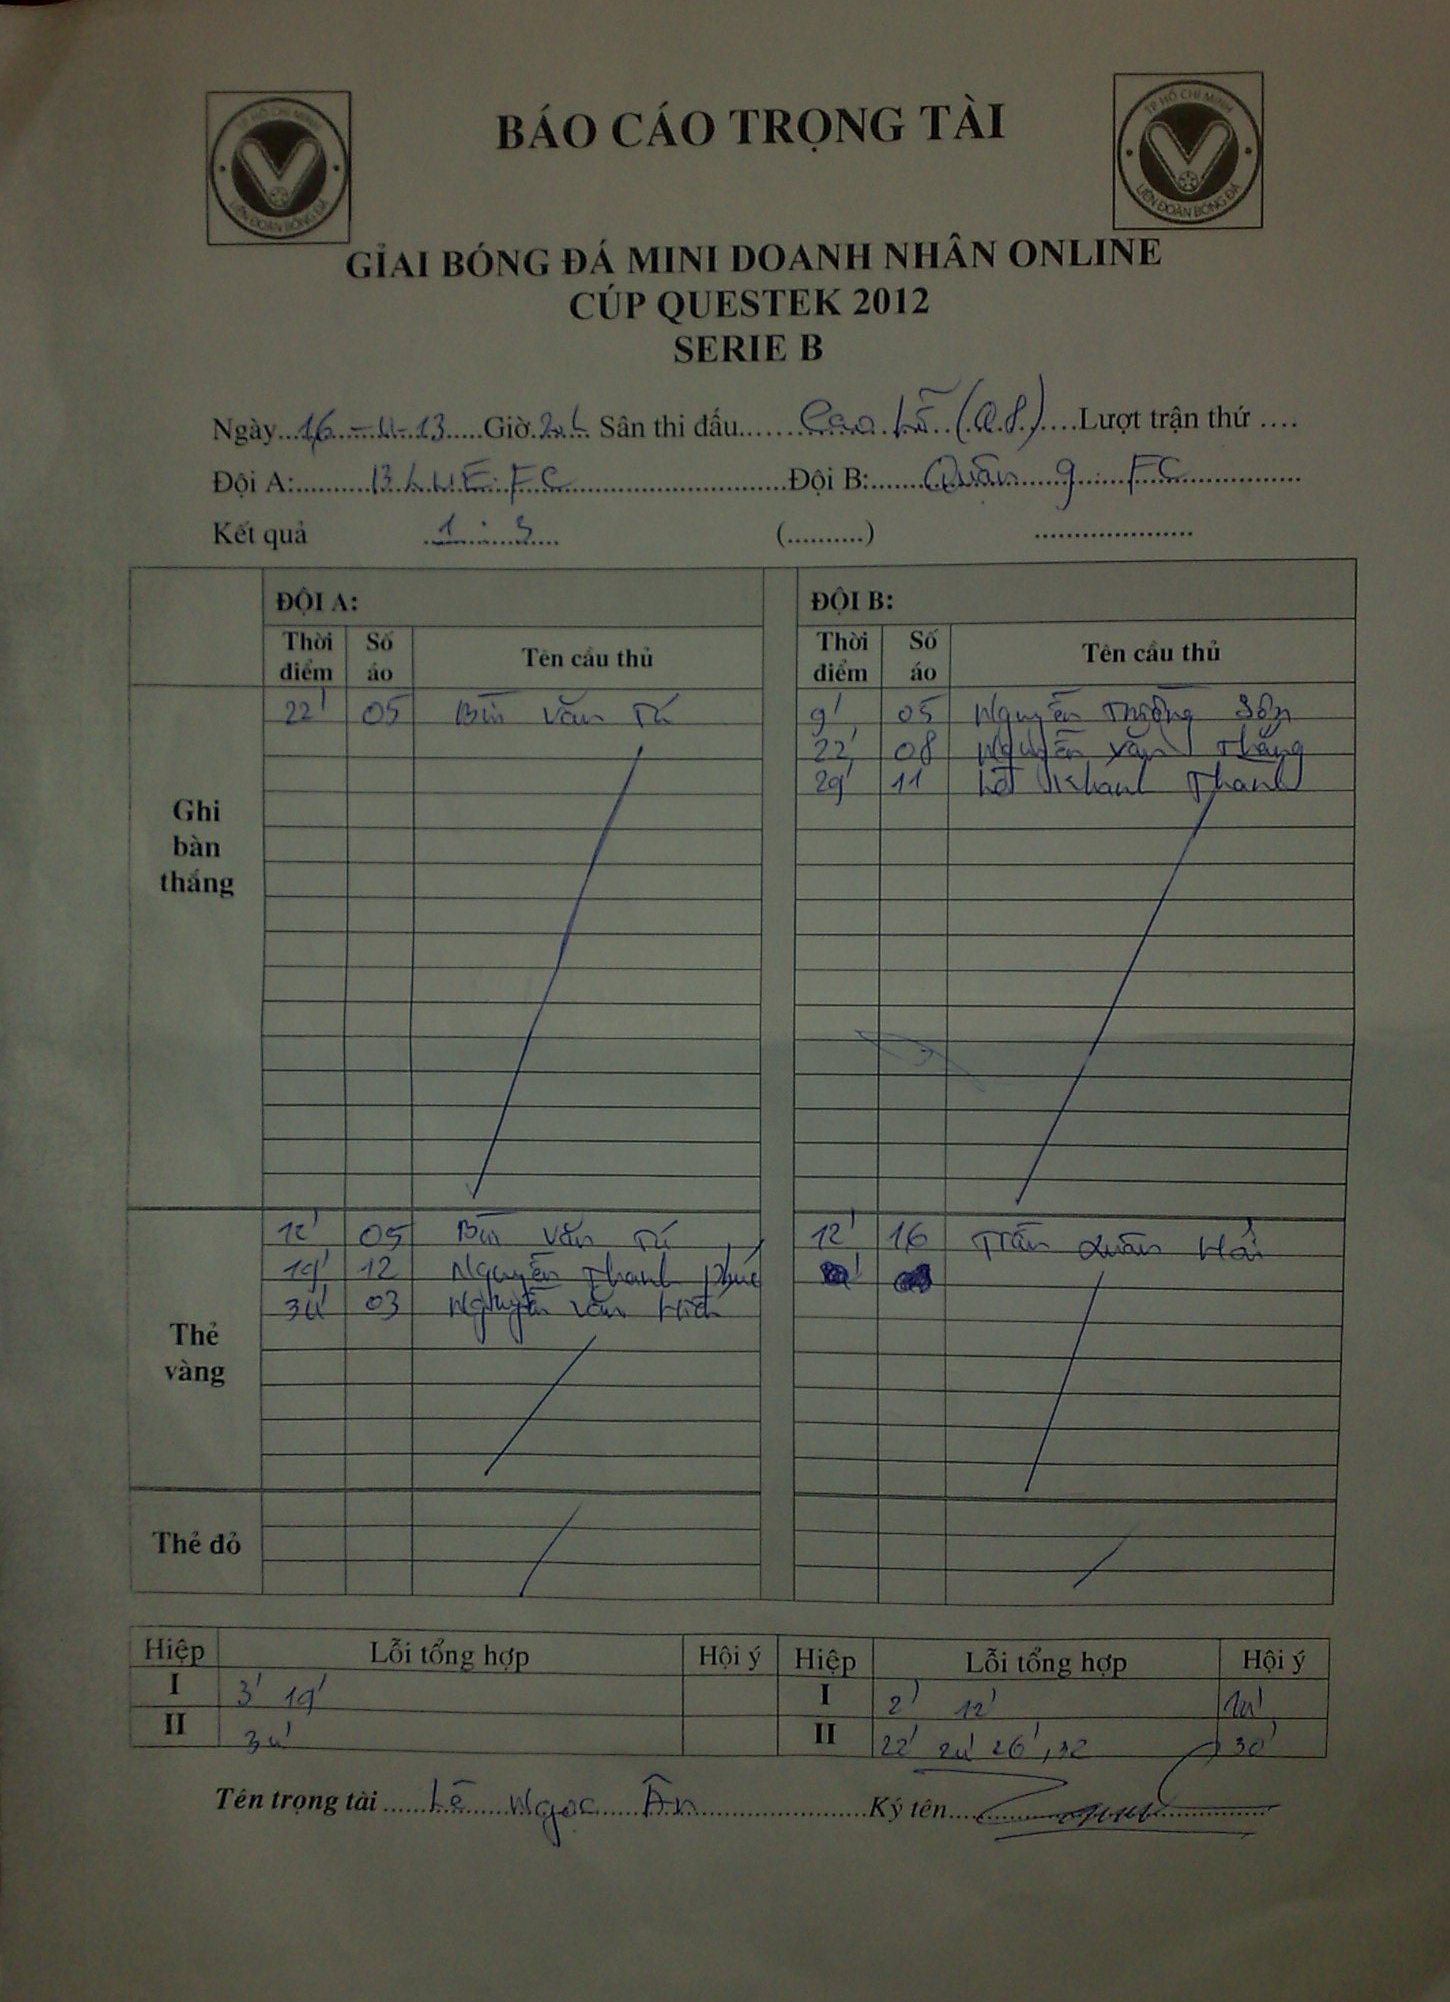 TP HỒ CHÍ MINH
LIÊN ĐOÀN BÓNG ĐÁ
BÁO CÁO TRỌNG TÀI
TP HỒ CHÍ MINH
LIÊN ĐOÀN BÓNG ĐÁ
GIẢI BÓNG ĐÁ MINI DOANH NHÂN ONLINE
CÚP QUESTEK 2012
SERIE B
Ngày...16-4-13.....Giờ.......Sân thi đấu......Cao Lỗ (Q8)....Lượt trận thứ ....
Đội A:......BLUE FC......Đội B:......Quân 9 FC......
Kết quả 1 : 3 (..........) ....................
ĐỘI A: ĐỘI B:
Thời điểm Số áo Tên cầu thủ Thời điểm Số áo Tên cầu thủ
Ghi bàn thắng
22' 05 Bùi Văn Tú 9' 05 Nguyễn Sơn
22' 08 Nguyễn Văn Thắng
29' 11 Khanh Thanh
Thẻ vàng
12' 05 Bùi Văn Tú 12' 16 Trần Quân Hải
19' 12 Nguyễn Thanh Phúc
34' 03 Nguyễn Văn
Thẻ đỏ
Hiệp Lỗi tổng hợp Hội ý Hiệp Lỗi tổng hợp Hội ý
I 3' 19' I 2' 12'
II 34' II 22' 24' 26', 32 30'
Tên trọng tài......Lê Ngọc Ân......Ký tên......